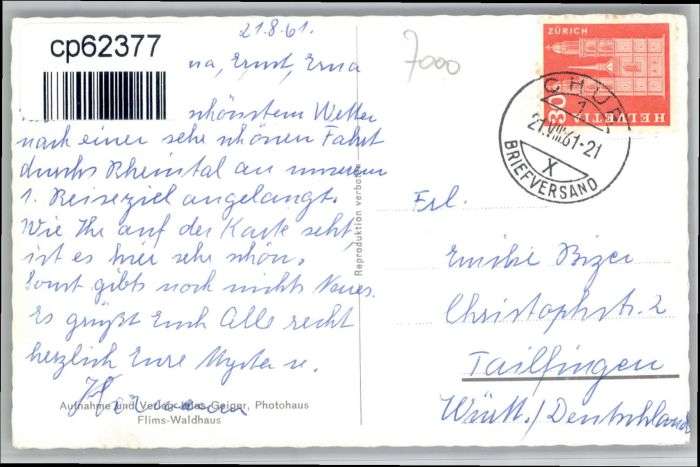 cp62377
21.8.61.
7000
na, Ernst, Erna
schönstem Wetter
nach einer sehr schönen Fahrt
durchs Rheintal an unserem
1. Reiseziel angelangt.
Wie Ihr auf der Karte seht,
ist es hier sehr schön.
Sonst gibts noch nichts Neues.
Es grüßt Euch Alle recht
herzlich Eure
Aufnahme und Verlag Geiger, Photohaus
Flims-Waldhaus
Reproduktion verboten
ZÜRICH
HELVETIA
30
CHUR
1
21.VIII.61-21
X
BRIEFVERSAND
Frl.
Emilie Bizer
Christophstr. 2
Tailfingen
Württ./Deutschland